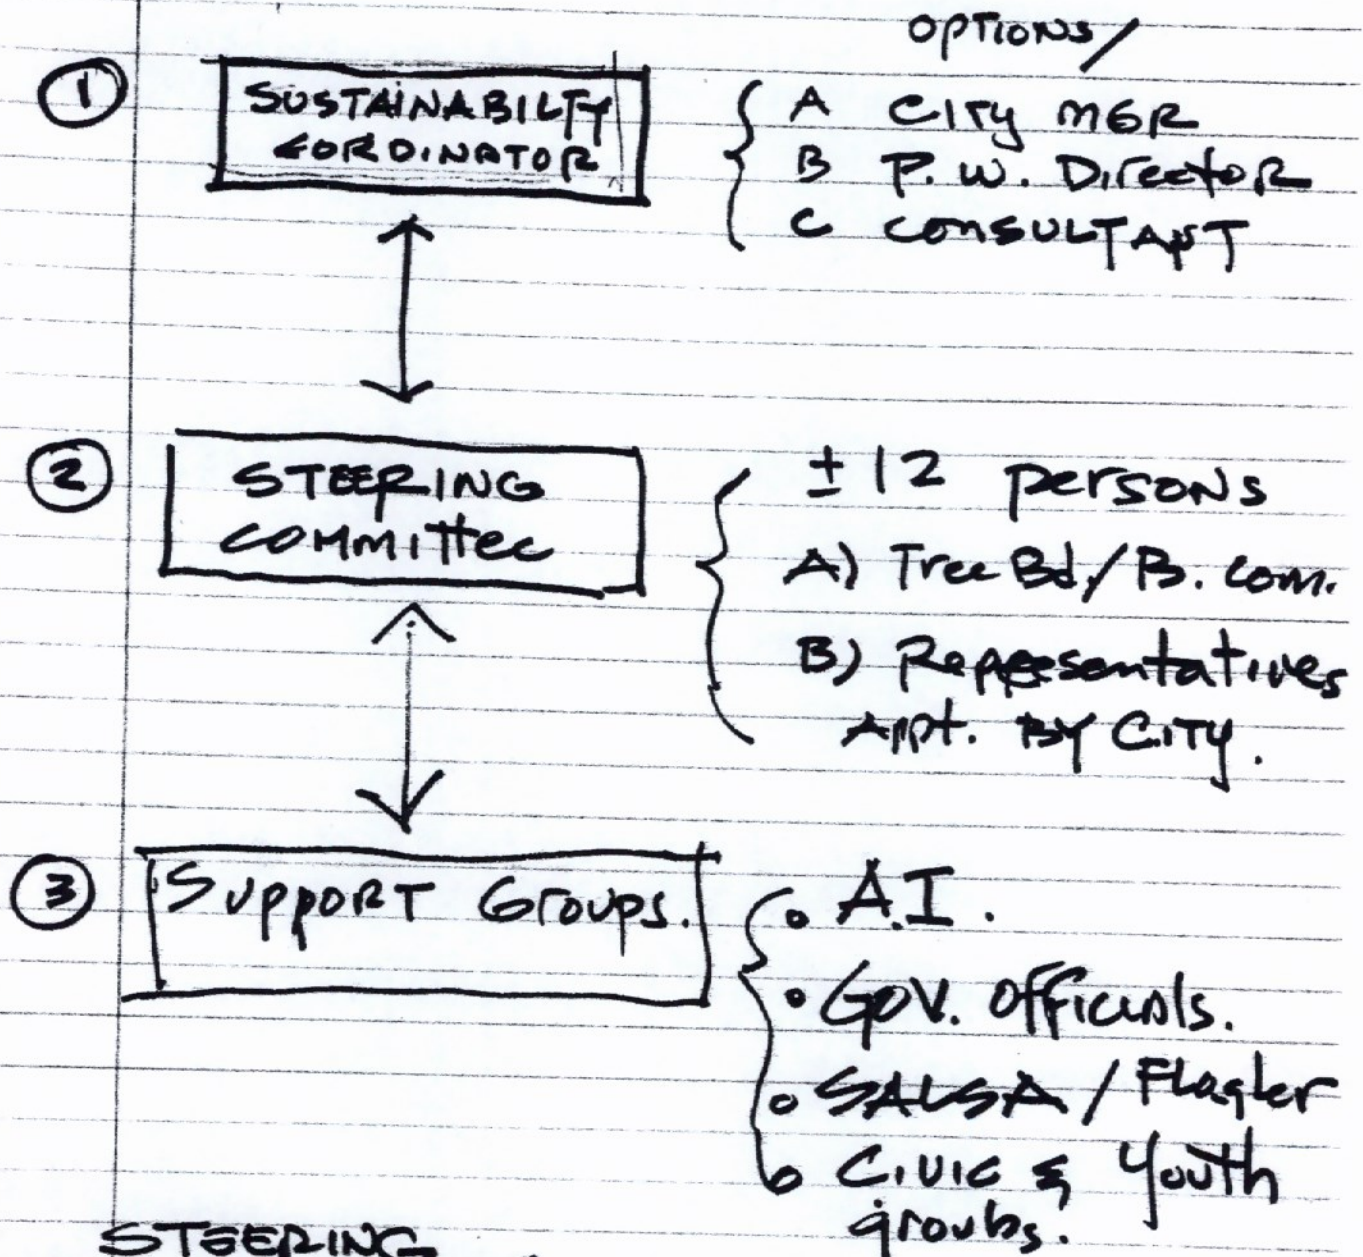 OPTIONS/
1 SUSTAINABILTY
CORDINATOR
A CITY MGR
B P.W. DIRECTOR
C CONSULTANT
2 STEERING
COMMITTEE
± 12 PERSONS
A) Tree Bd./B. Com.
B) Representatives
APPt. BY CITY.
3 SUPPORT GROUPS.
• A.I.
• GOV. OFFICIALS.
• SALSA / Flagler
• CIVIC & Youth
groups.
STEERING